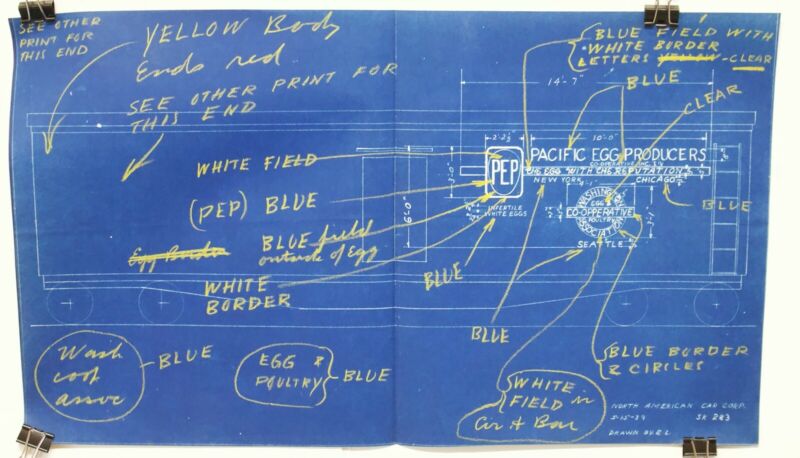 SEE OTHER
PRINT FOR
THIS END
YELLOW Body
Ends red
SEE OTHER PRINT FOR
THIS END
BLUE FIELD WITH
WHITE BORDER
LETTERS YELLOW - CLEAR
BLUE
CLEAR
14'-7"
2'-2½"
10'-0"
3'-0"
6'-0"
PEP
PACIFIC EGG PRODUCERS
CO-OPERATIVE, INC.
THE EGG WITH THE REPUTATION
NEW YORK
CHICAGO
INFERTILE
WHITE EGGS
WASHINGTON
EGG &
CO-OPERATIVE
POULTRY
ASSOCIATION
SEATTLE
WHITE FIELD
(PEP) BLUE
Egg Border
BLUE field
outside of Egg
WHITE
BORDER
BLUE
BLUE
BLUE
Wash
coop
assoc
- BLUE
EGG &
POULTRY
BLUE
WHITE
FIELD in
Cir & Bar
BLUE BORDER
& CIRCLES
NORTH AMERICAN CAR CORP.
5-15-39
SK 283
DRAWN